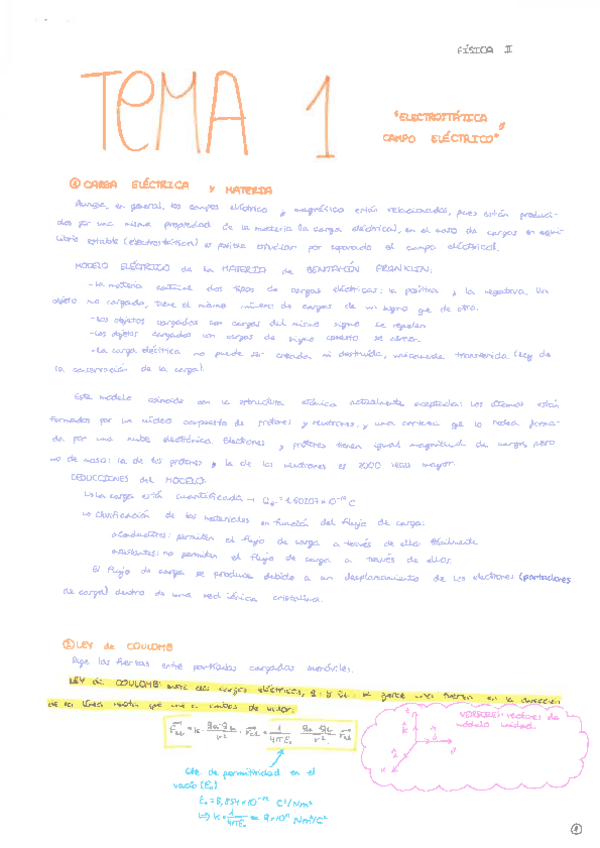 FÍSICA II
TEMA 1
"ELECTROSTÁTICA y
CAMPO ELÉCTRICO"
① CARGA ELÉCTRICA y MATERIA
Aunque, en general, los campos eléctrico y magnético están relacionados, pues están produci-
dos por una misma propiedad de la materia (la carga eléctrica), en el caso de cargas en equi-
librio estable (electrostática) es posible estudiar por separado el campo eléctrico.
MODELO ELÉCTRICO de la MATERIA de BENJAMÍN FRANKLIN:
-La materia contiene dos tipos de cargas eléctricas: la positiva y la negativa. Un
objeto no cargado, tiene el mismo número de cargas de un signo que de otro.
-Los objetos cargados con cargas del mismo signo se repelen
-Los objetos cargados con cargas de signo opuesto se atraen.
-La carga eléctrica no puede ser creada ni destruida, únicamente transferida (Ley de
la conservación de la carga).
Este modelo coincide con la estructura atómica actualmente aceptada: Los átomos están
formados por un núcleo compuesto de protones y neutrones, y una corteza que lo rodea forma-
da por una nube electrónica. Electrones y protones tienen igual magnitud de cargas, pero
no de masa: la de los protones y la de los neutrones es 2000 veces mayor.
DEDUCCIONES del MODELO:
↳ La carga está cuantificada →
↳ Clasificación de los materiales en función del flujo de carga:
Conductores: permiten el flujo de carga a través de ellos fácilmente
Aislantes: no permiten el flujo de carga a través de ellos.
El flujo de carga se produce debido a un desplazamiento de los electrones (portadores
de carga) dentro de una red iónica cristalina.
② LEY de COULOMB
Rige las fuerzas entre partículas cargadas inmóviles.
LEY de COULOMB: entre dos cargas eléctricas, se ejerce una fuerza en la dirección
de la línea recta que une a ambas de valor:
VERSORES: vectores de
módulo unidad
Cte de permitividad en el
vacío (E₀)
E₀ = 8,854 × 10⁻¹² C²/Nm²
①